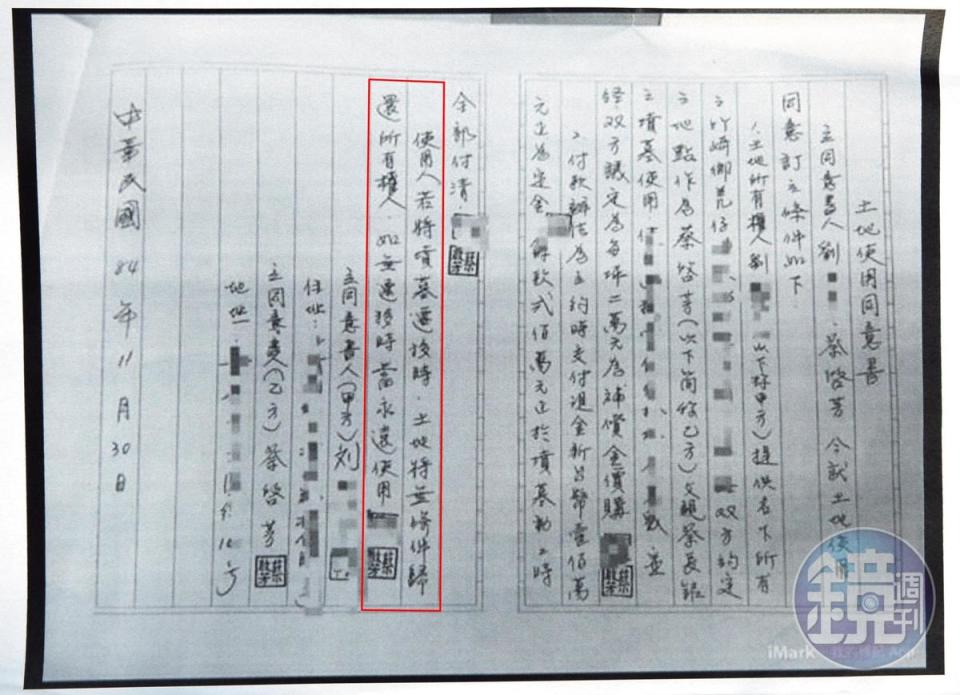 土地使用同意書
立同意書人劉 蔡啓芳 今就土地使用
同意訂立條件如下
1.土地所有權人劉 (以下称甲方)提供名下所有
之竹崎鄉 仔 双方約定
之地點作為蔡啓芳(以下簡称乙方)父親蔡長銀
之墳墓使用 並
經双方議定為每坪二萬元為補償金價購
2.付款辦法為立約時支付現金新台幣壹佰萬
元正為定金 餘款弍佰萬元正於墳墓動工時
全部付清.
使用人若將墳墓遷移時.土地將無條件歸
還所有權人.如無遷移時當永遠使用
立同意書人(甲方)刘
住址:
立同意書人(乙方)蔡啓芳
地址:
中華民國84年11月30日
鏡週刊
iMark